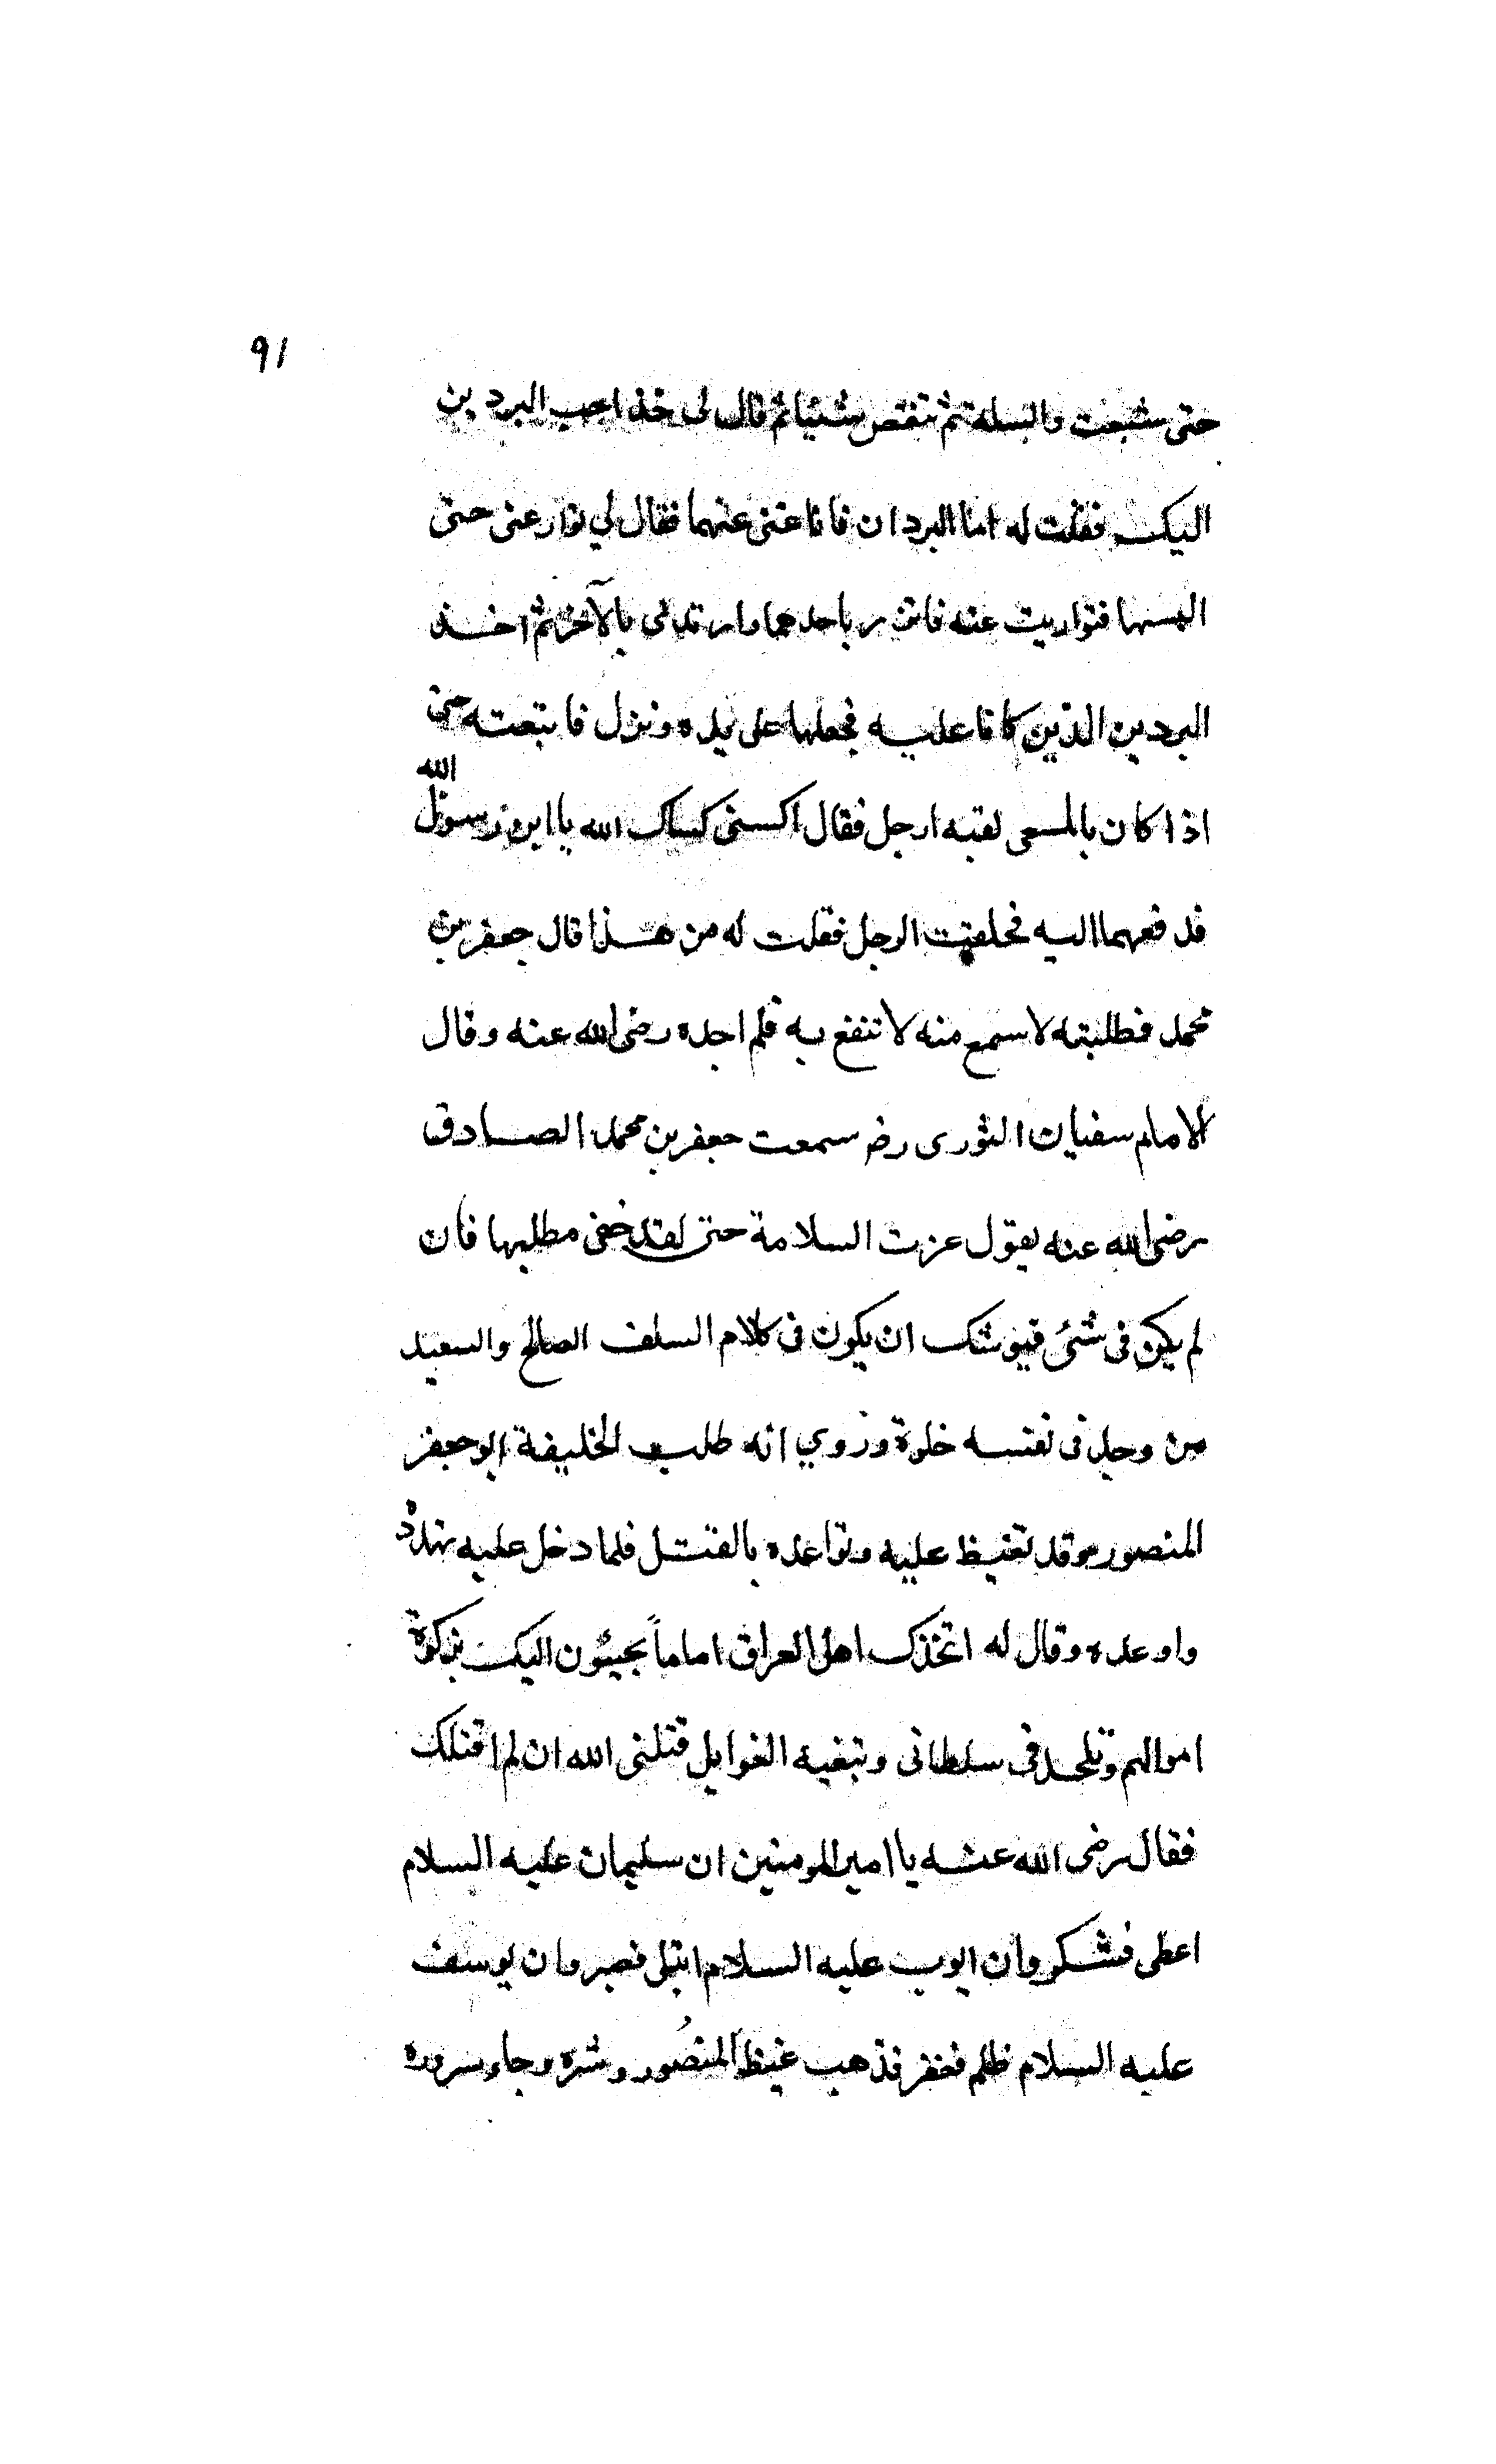 91
حتى شبعت والبسلة ثم تنقص شئيا ثم قال لى خذ احب البردين
اليك فقلت له اما البردان فانا غنى عنهما فقال لي توار عنى حتى
البسها فتواريت عنه فاتزر باحدهما وارتدى بالآخر ثم اخذ
البردين الذين كانا عليه فجعلها على يده ونزل فاتبعته حتى
اذا كان بالمسعى لقيه ارجل فقال اكسنى كساك الله يا ابن رسول الله
فدفعهما اليه فحلقت الرجل فقلت له من هذا قال جعفر بن
محمد فطلبته لاسمع منه لا تنفع به فلم اجده رضى الله عنه وقال
الامام سفيان الثورى رضر سمعت جعفر بن محمد الصادق
رضى الله عنه يقول عزت السلامة حتى لقد خفى مطلبها فان
لم يكن فى شئ فيوشك ان يكون فى كلام السلف الصالح والسعيد
من وجد فى نفسه خلوة وروي انه طلب الخليفة ابو جعفر
المنصور وقد تغيظ عليه وتواعده بالقتل فلما دخل عليه تهدده
واوعده وقال له اتخذك اهل العراق اماماً يجيئون اليك بزكوة
اموالهم وتلحد فى سلطانى وتبغيه الغوايل قتلنى الله ان لم اقتلك
فقال رضى الله عنه يا امير المومنين ان سليمان عليه السلام
اعطى فشكر وان ايوب عليه السلام ابتلى فصبر وان يوسف
عليه السلام ظلم فغفر فذهب غيظ المنصور وشره وجاء سروره